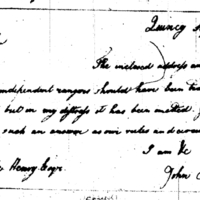 Quincy
The inclosed address
independent rangers should have been
but in my distress it has been omitted.
such an answer as our rules and
I am &c
Henry Esqr.
John